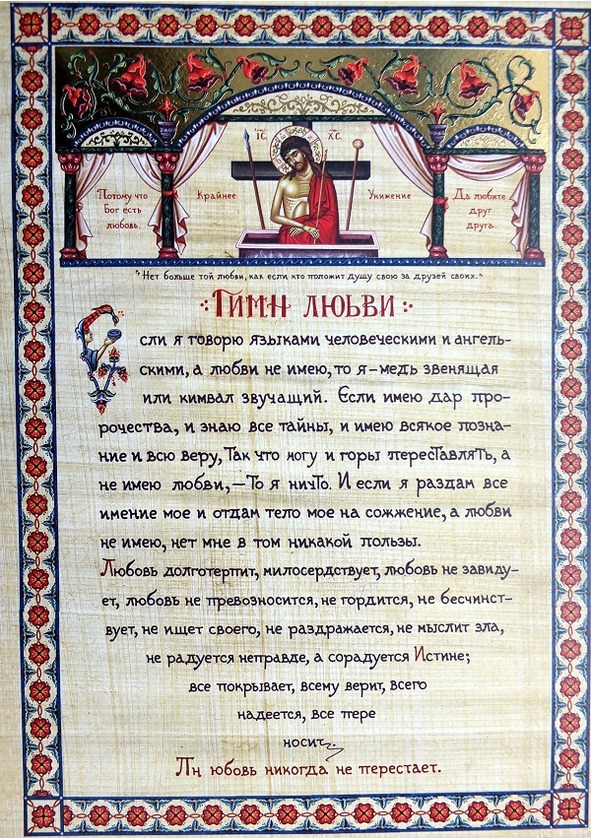 IC XC
Потому что
Бог есть
любовь.
Крайнее
Унижение
Да любите
друг
друга
"Нет больше той любви, как если кто положит душу свою за друзей своих."
ГИМН ЛЮБВИ
Если я говорю языками человеческими и ангель-
скими, а любви не имею, то я – медь звенящая
или кимвал звучащий. Если имею дар про-
рочества, и знаю все тайны, и имею всякое позна-
ние и всю веру, Так что могу и горы переставлять, а
не имею любви, – То я ничто. И если я раздам все
имение мое и отдам тело мое на сожжение, а любви
не имею, нет мне в том никакой пользы.
Любовь долготерпит, милосердствует, любовь не завиду-
ет, любовь не превозносится, не гордится, не бесчинст-
вует, не ищет своего, не раздражается, не мыслит зла,
не радуется неправде, а сорадуется Истине;
все покрывает, всему верит, всего
надеется, все пере
носит.
юбовь никогда не перестает.